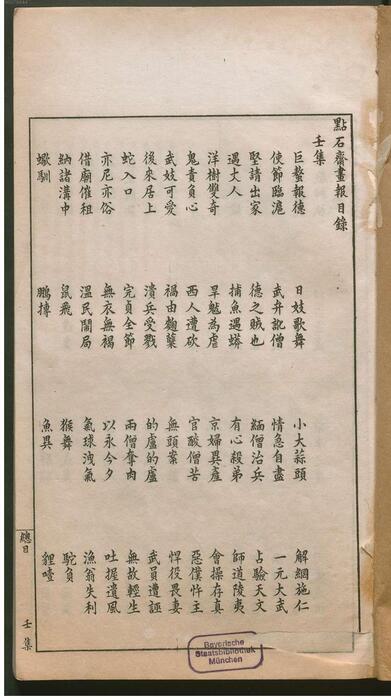 點石齋畫報目錄
壬集
巨螯報德　日妓歌舞　小大蒜頭　解網施仁
使節臨滬　武弁訛僧　情急自盡　一元大武
堅請出家　德之賊也　緬僧治兵　占驗天文
遇丈人　捕魚遇蟒　有心殺弟　師道陵夷
洋樹雙奇　旱魃為虐　京婦異產　會操存真
鬼責負心　西人遭砍　官酸僧苦　惡僕忤主
武妓可愛　禍由麴糵　無頭案　悍役畏妻
後來居上　潰兵受戮　的盧的盧　武員遭誣
蛇入口　完貞全節　兩僧奪肉　無故輕生
亦尼亦俗　無衣無褐　以永今夕　吐握遺風
借廟催租　溫民鬧局　氣球洩氣　漁翁失利
納諸溝中　鼠飛　猴舞　駝負
蠍馴　鵬摶　魚異　貍噎
總目　壬集
Bayerische
Staatsbibliothek
München